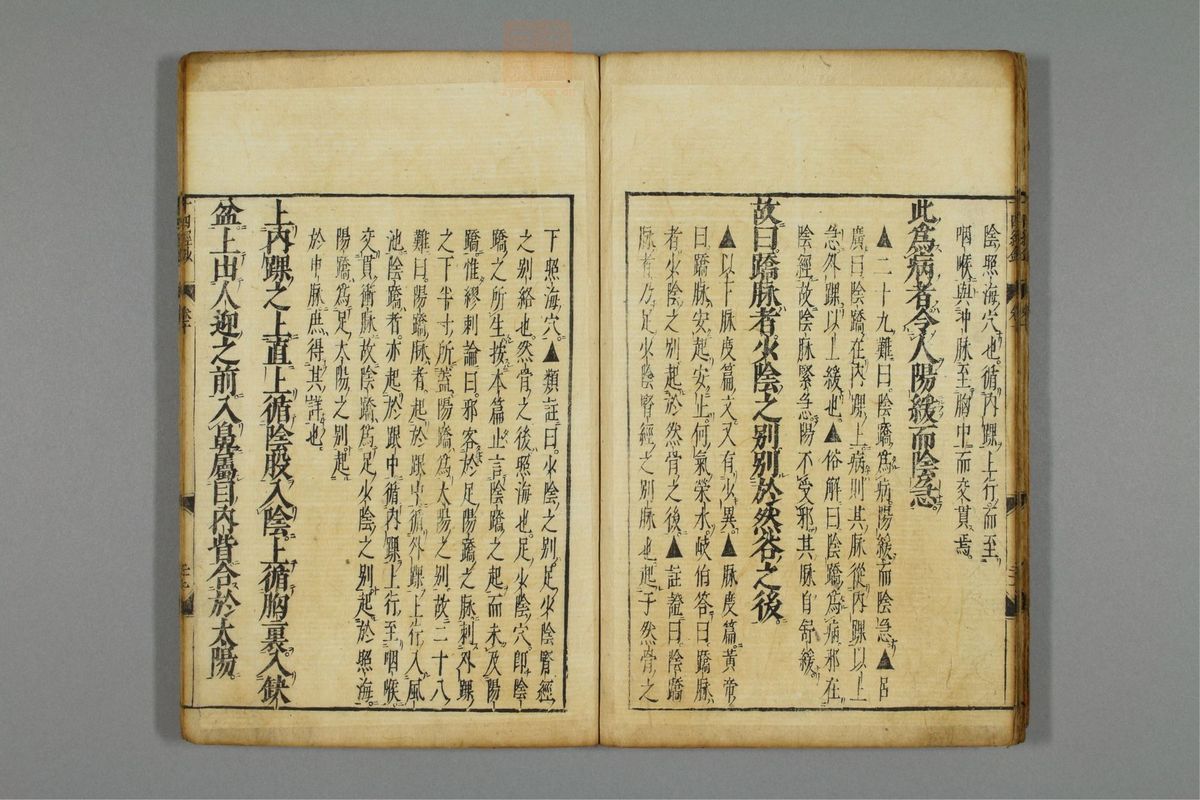 陰照海穴也循内踝上行而至
咽喉與冲脉至胸中而交貫焉
此爲病者令人陽緩而陰急
▲二十九難曰陰蹻爲病陽緩而陰急▲呂
廣曰陰蹻在内踝上病則其脉從内踝以上
急外踝以上緩也▲俗解曰陰蹻爲病邪在
陰經故陰脉緊急陽不受邪其脉自舒緩
故曰蹻脉者少陰之别别於然谷之後
▲以下脉度篇文又有少異▲脉度篇黄帝
曰蹻脉安起安止何氣榮水岐伯答曰蹻脉
者少陰之别起於然骨之後▲註證曰陰蹻
脉者乃足少陰腎經之别脉也起于然骨之
下照海穴▲類註曰少陰之别足少陰腎經
之别絡也然骨之後照海也足少陰穴即陰
蹻之所生按本篇止言陰蹻之起而未及陽
蹻惟繆刺論曰邪客於足陽蹻之脉刺外踝
之下半寸所蓋陽蹻爲太陽之别故二十八
難曰陽蹻脉者起於跟中循外踝上行入風
池陰蹻者亦起於跟中循内踝上行至咽喉
交貫衝脉故陰蹻爲足少陰之别起於照海
陽蹻爲足太陽之别起
於申脉庶得其詳也
上内踝之上直上循陰股入陰上循胸裏入缺
盆上出人迎之前入鼻屬目内眥合於太陽